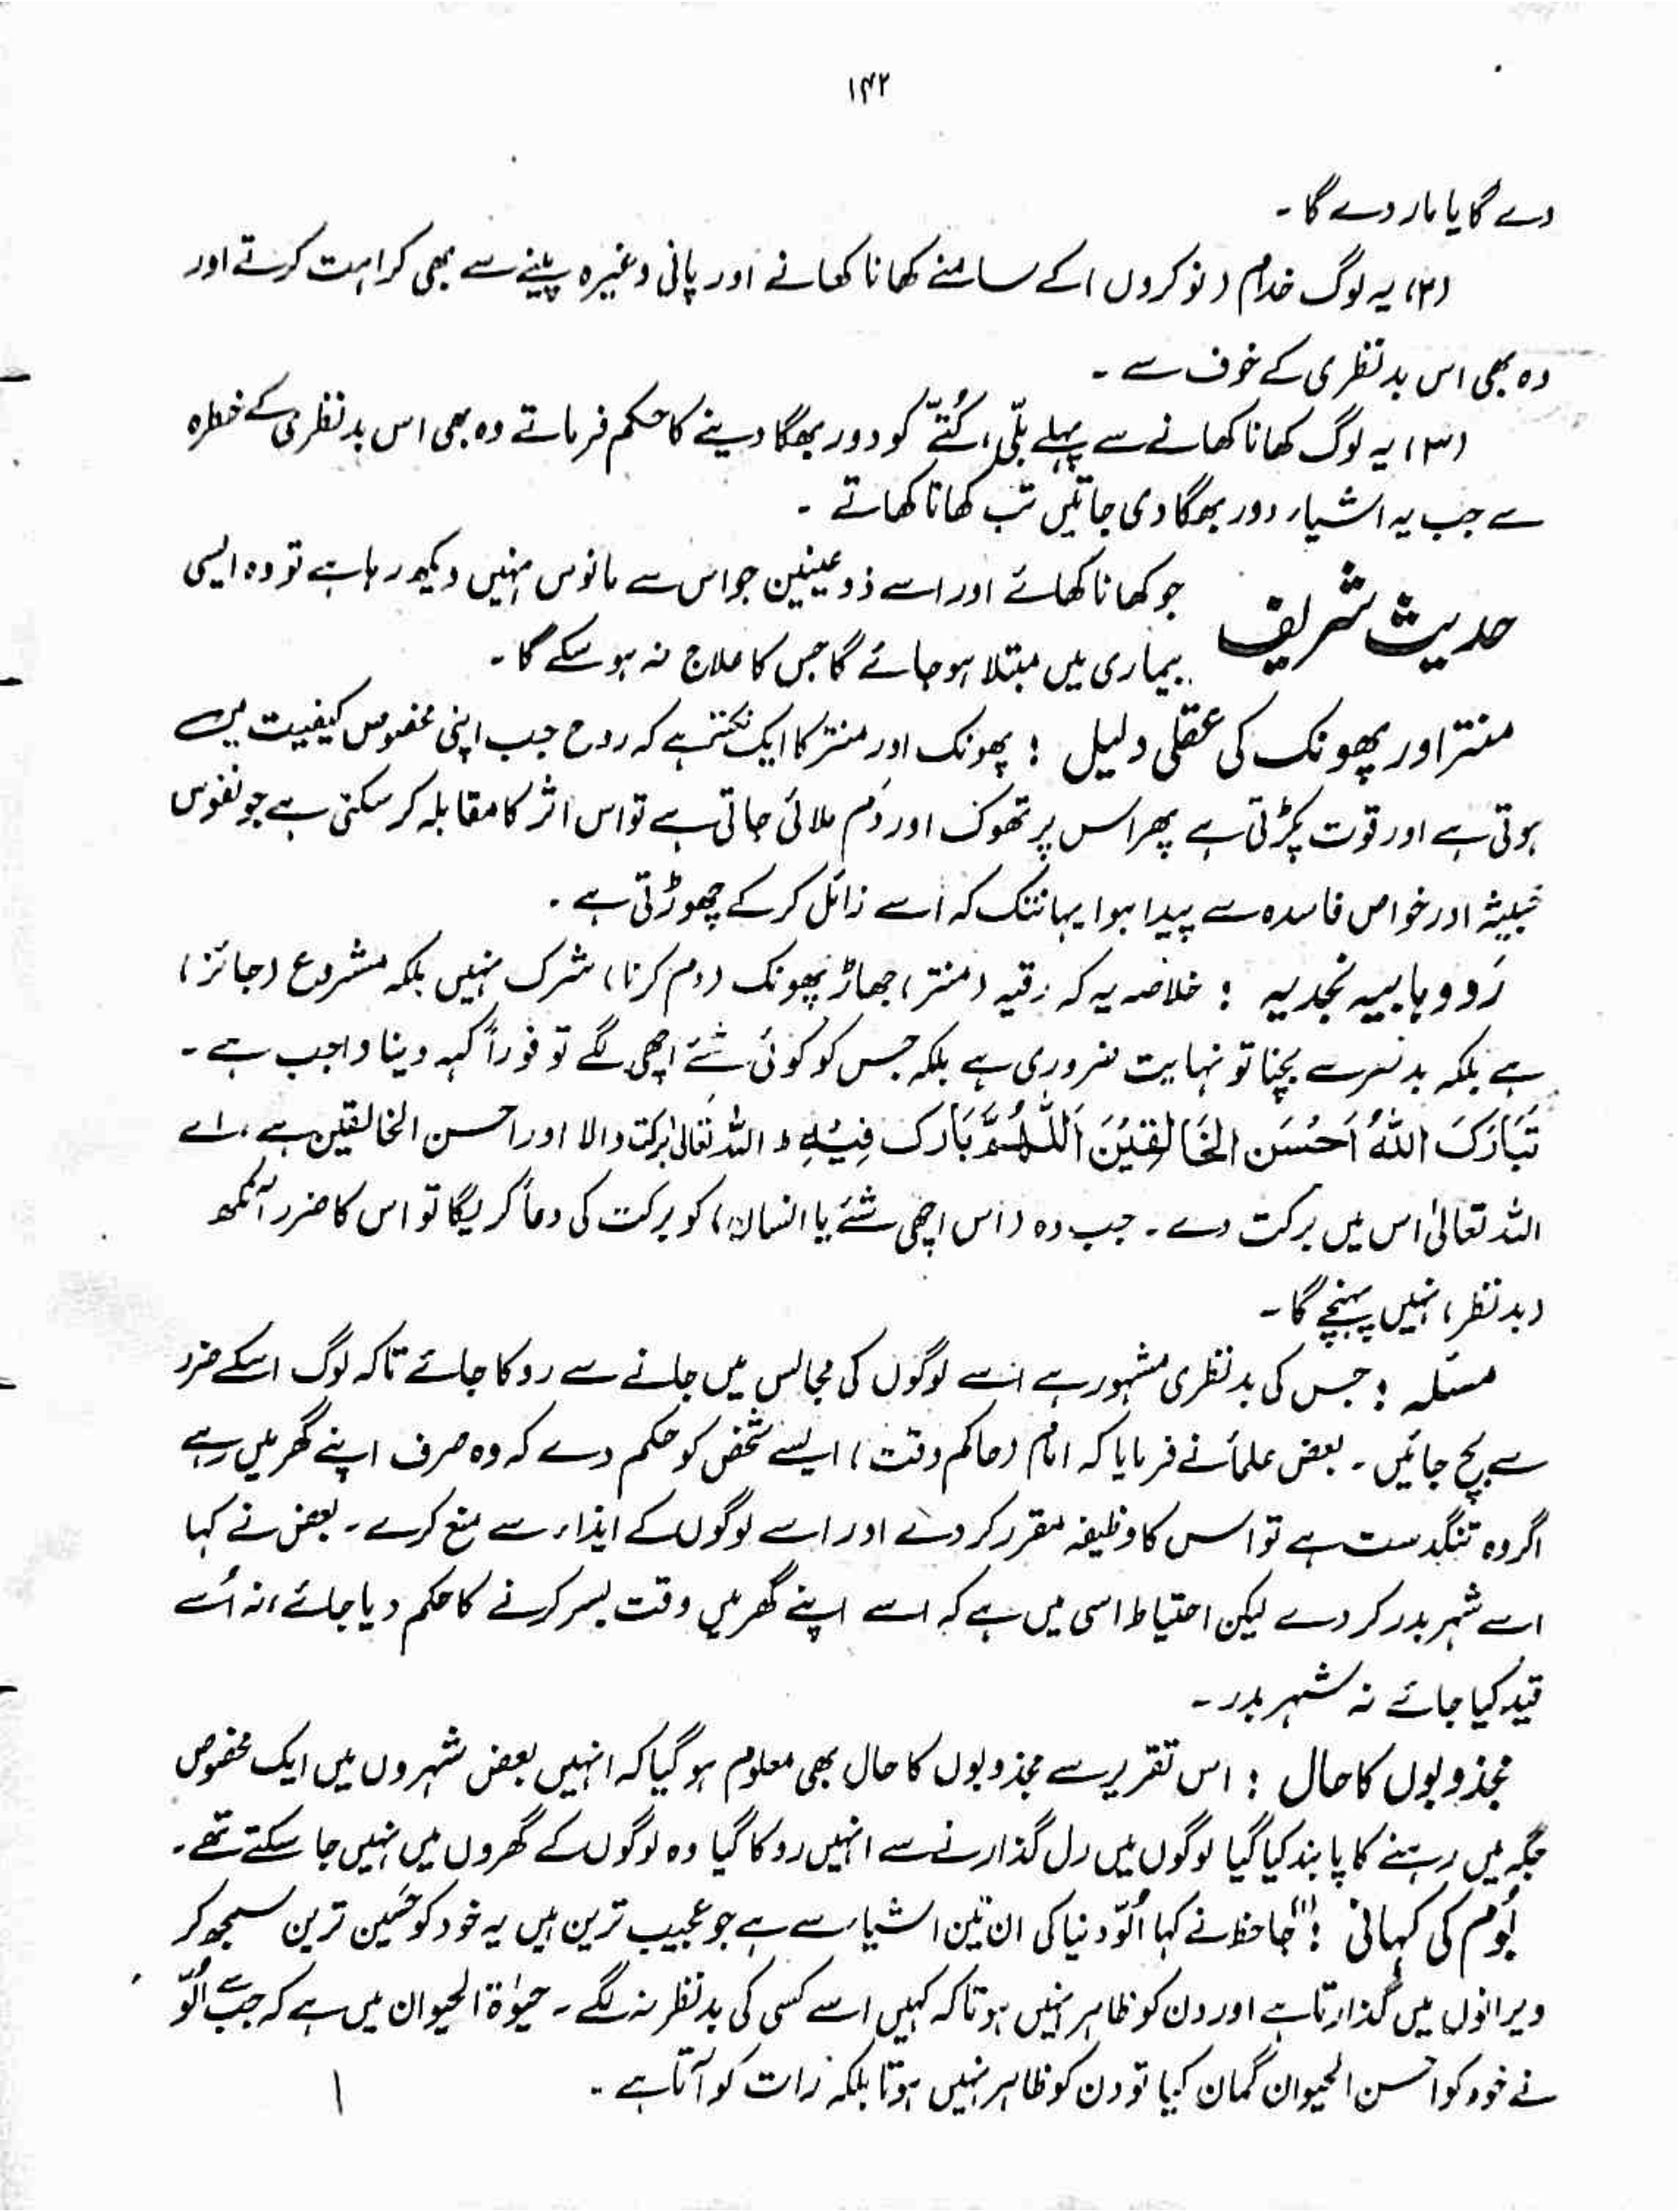 ۱۴۲
دے گا یا مار دے گا۔
(۲) یہ لوگ خدام (نوکروں) کے سامنے کھانا کھانے اور پانی وغیرہ پینے سے بھی کراہت کرتے اور
وہ بھی اس بدنظری کے خوف سے۔
(۳) یہ لوگ کھانا کھانے سے پہلے بلّی، کُتّے کو دور بھگا دینے کا حکم فرماتے وہ بھی اس بدنظری کے خطرہ
سے جب یہ اشیاء دور بھگا دی جاتیں تب کھانا کھاتے۔
حدیث شریف جو کھانا کھائے اور اسے ذو عینین جو اس سے مانوس نہیں دیکھ رہا ہے تو وہ ایسی
بیماری میں مبتلا ہو جائے گا جس کا علاج نہ ہو سکے گا۔
منتر اور پھونک کی عقلی دلیل : پھونک اور منتر کا ایک نکتہ ہے کہ روح جب اپنی مخصوص کیفیت میں
ہوتی ہے اور قوت پکڑتی ہے پھر اس پر تھوک اور دَم ملائی جاتی ہے تو اس اثر کا مقابلہ کر سکتی ہے جو نفوس
خبیثہ اور خواص فاسدہ سے پیدا ہوا یہانتک کہ اسے زائل کر کے چھوڑتی ہے۔
رَدِ وہابیہ نجدیہ : خلاصہ یہ کہ رقیہ (منتر) جھاڑ پھونک (دم کرنا) شرک نہیں بلکہ مشروع (جائز)
ہے بلکہ بدنظر سے بچنا تو نہایت ضروری ہے بلکہ جس کو کوئی شَئے اچھی لگے تو فوراً کہہ دینا واجب ہے۔
تَبَارَکَ اللّٰهُ اَحُسَن الخَالِقِیُنَ اَللّٰهُمَّ بَارک فِیُهِ ، اللہ تعالیٰ برکت والا اور احسن الخالقین ہے، اے
اللہ تعالیٰ اس میں برکت دے۔ جب وہ (اس اچھی شَئے یا انسان) کو برکت کی دعأ کریگا تو اس کا ضرر آنکھ
(بدنظر) نہیں پہنچے گا۔
مسئلہ : جس کی بدنظری مشہور ہے اسے لوگوں کی مجالس میں جانے سے روکا جائے تاکہ لوگ اسکے ضرر
سے بچ جائیں۔ بعض علمأ نے فرمایا کہ امام (حاکم وقت) ایسے شخص کو حکم دے کہ وہ صرف اپنے گھر میں رہے
اگر وہ تنگدست ہے تو اس کا وظیفہ مقرر کر دے اور اسے لوگوں کے ایذاء سے منع کرے۔ بعض نے کہا
اسے شہر بدر کر دے لیکن احتیاط اسی میں ہے کہ اسے اپنے گھر میں وقت بسر کرنے کا حکم دیا جائے، نہ اُسے
قید کیا جائے نہ شہر بدر۔
مجذوبوں کا حال : اس تقریر سے مجذوبوں کا حال بھی معلوم ہو گیا کہ انہیں بعض شہروں میں ایک مخصوص
جگہ میں رہنے کا پابند کیا گیا لوگوں میں دل گذارنے سے انہیں روکا گیا وہ لوگوں کے گھروں میں نہیں جا سکتے تھے۔
بُوم کی کہانی : جاحظ نے کہا اُلّو دنیا کی ان تین اشیاء سے ہے جو عجیب ترین ہیں یہ خود کو حَسین ترین سمجھ کر
ویرانوں میں گذارتا ہے اور دن کو ظاہر نہیں ہوتا کہ کہیں اسے کسی کی بدنظر نہ لگے۔ حیوٰۃ الحیوان میں ہے کہ جب سے اُلّو
نے خود کو احسن الحیوان گمان کیا تو دن کو ظاہر نہیں ہوتا بلکہ رات کو آتا ہے۔